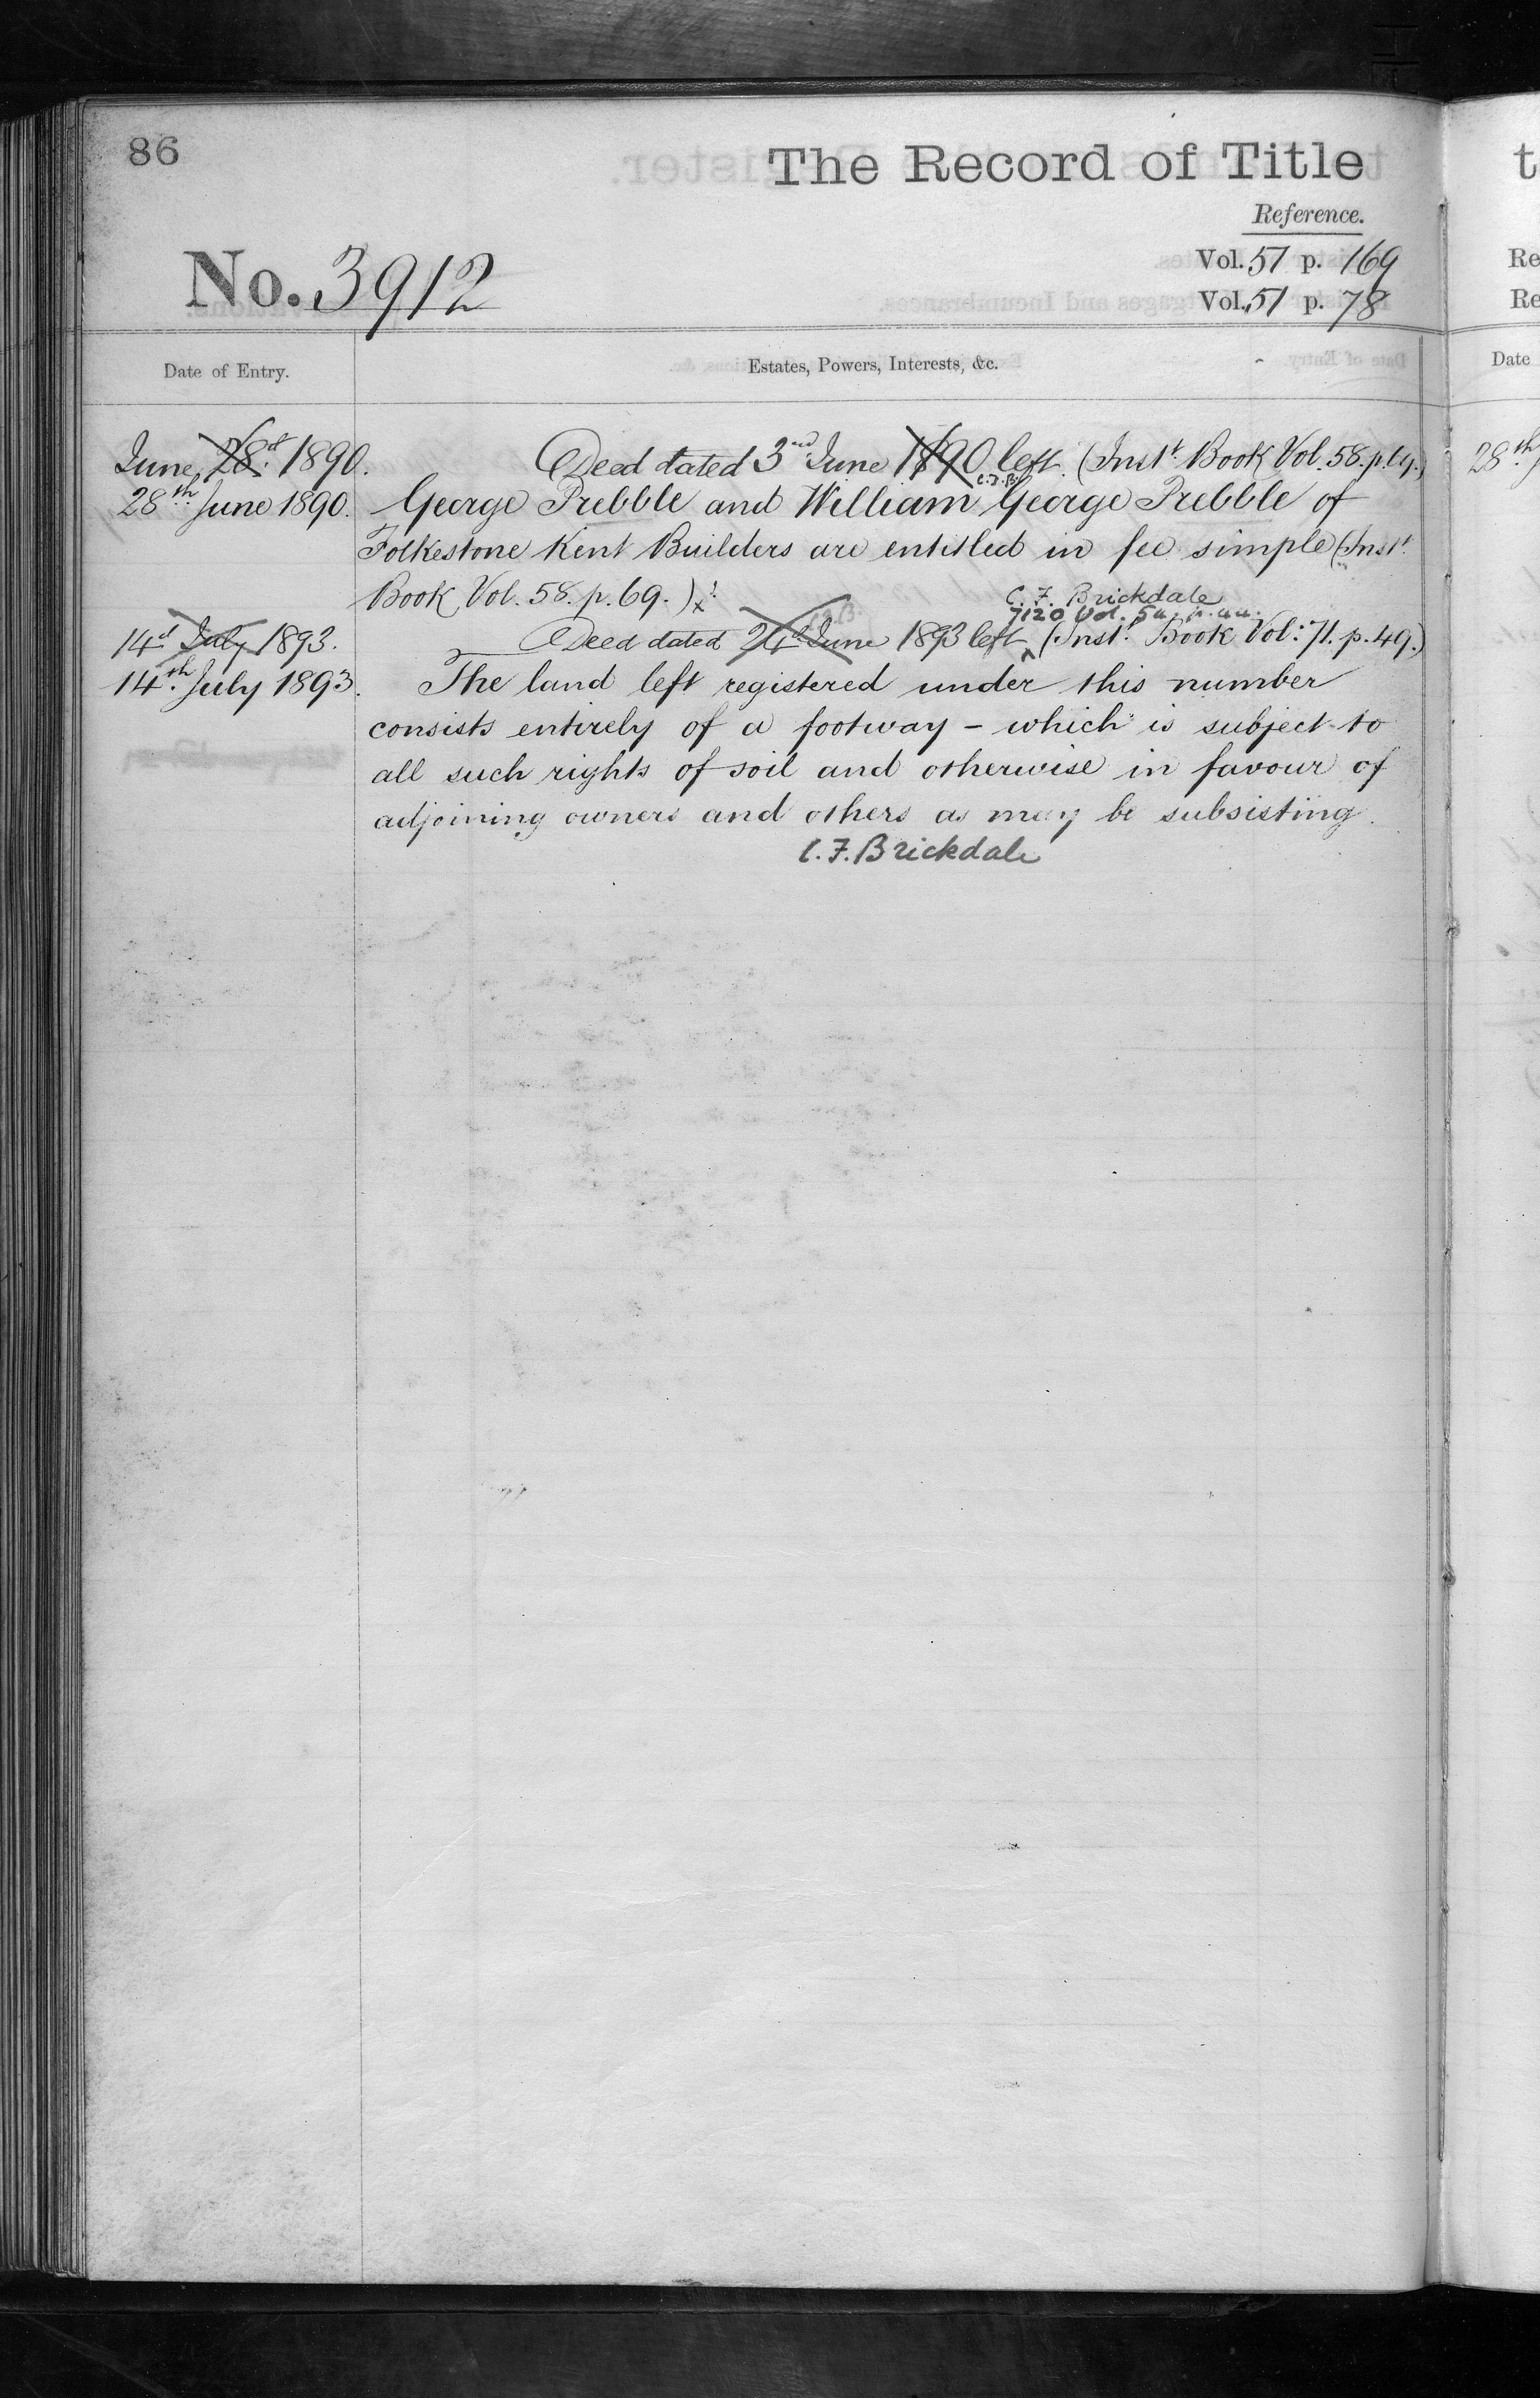 86
The Record of Title
Reference.
No. 3912
Vol. 57 p. 169
Vol. 51 p. 78
Date of Entry.
Estates, Powers, Interests, &c.
June 28th 1890. Deed dated 3rd June 1890 left. (Inst. Book Vol. 58. p. 69.)
C.F.B.
28th June 1890. George Prebble and William George Prebble of
Folkestone Kent Builders are entitled in fee simple (Inst.
Book Vol. 58. p. 69.)
C. F. Brickdale
7120 Vol.
14 July 1893. Deed dated 24 June 1893 left (Inst. Book Vol: 71. p. 49.)
14th July 1893. The land left registered under this number
consists entirely of a footway – which is subject to
all such rights of soil and otherwise in favour of
adjoining owners and others as may be subsisting.
C. F. Brickdale
t
Re
Re
Date
28th